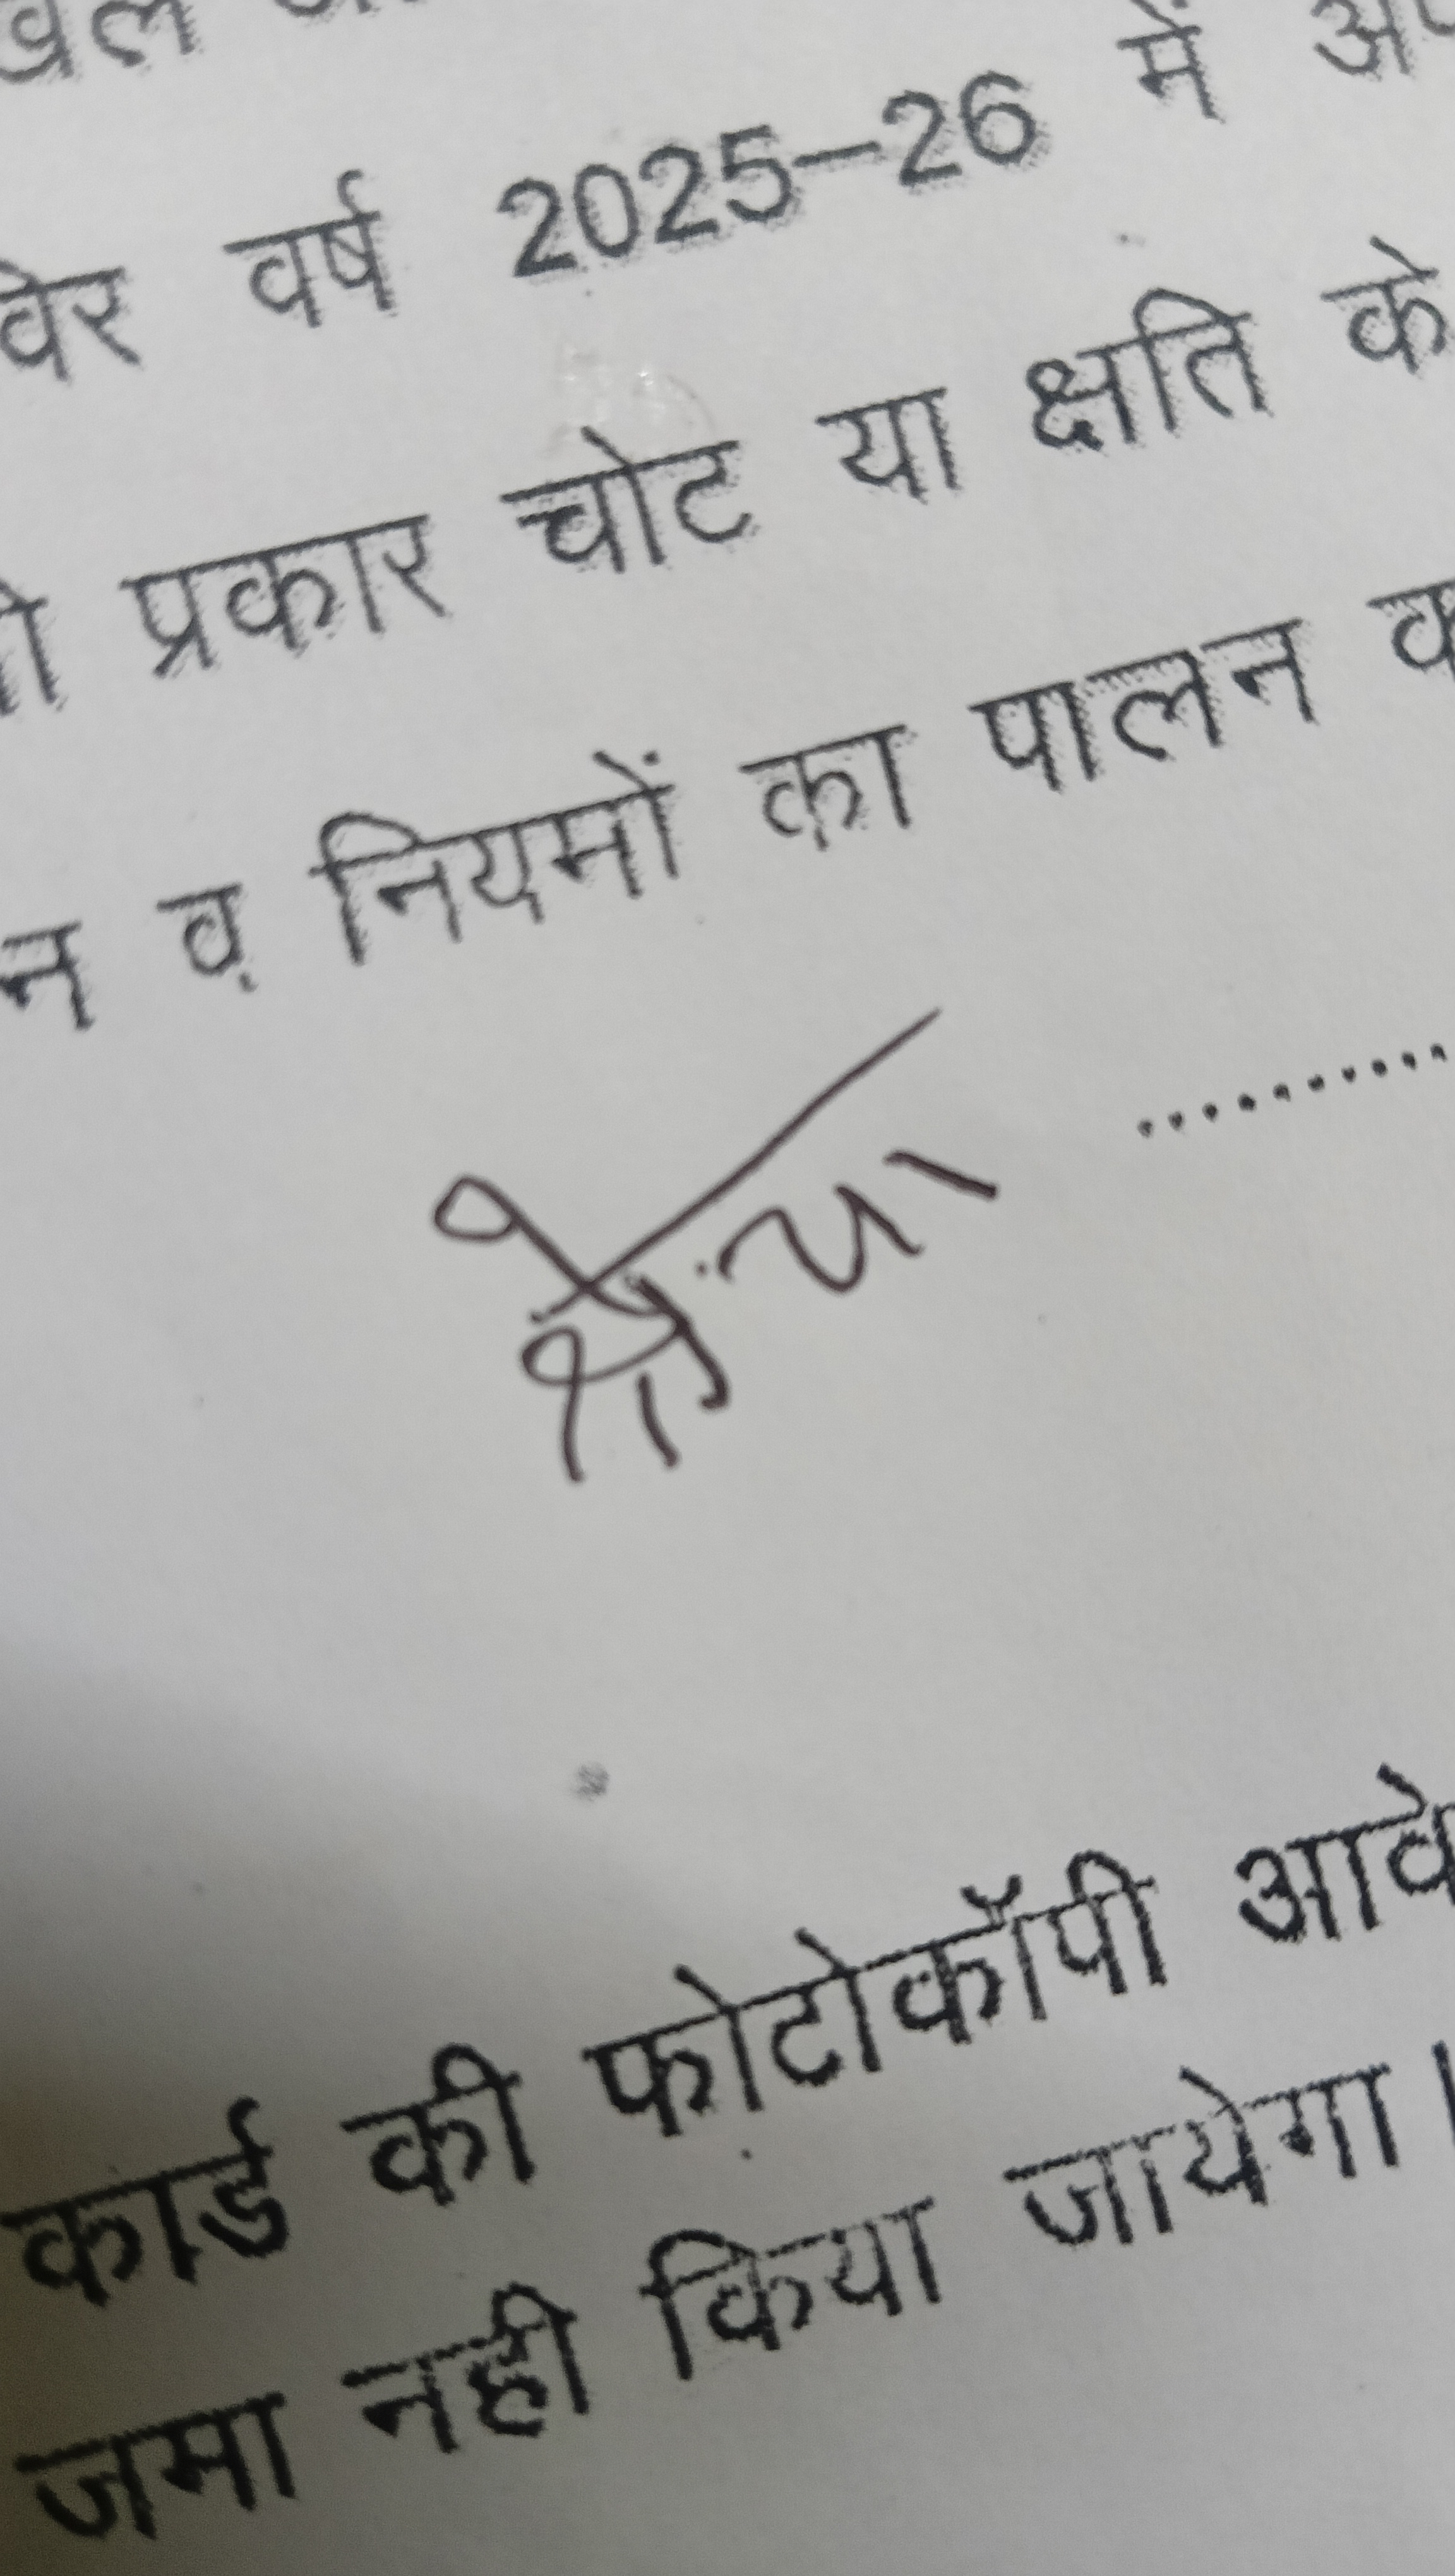 वर्ष 2025–26 में
प्रकार चोट या क्षति के
व नियमों का पालन
....................
कार्ड की फोटोकॉपी आवे
जमा नही किया जायेगा।